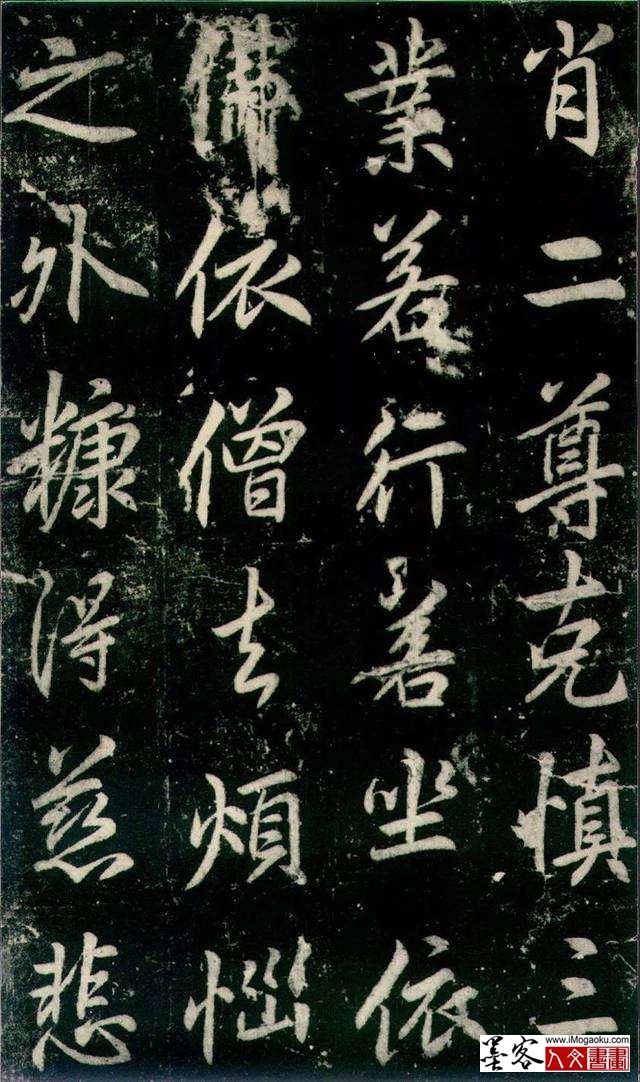 肖二尊克慎三
業若行若坐依
佛依僧去煩惱
之外糠得慈悲
墨客
www.iMogaoku.com
人文書畫